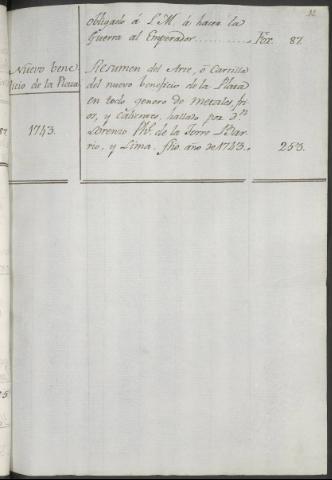 obligado á S.M. á hacer la
Guerra al Emperador.......... Fox. 87.
Nuevo bene
ficio de la Plata
1743.
Resumen del Arte, ó Cartilla
del nuevo beneficio de la Plata
en todo genero de metales, fri
os, y calientes, hallado por Dn
Lorenzo Phe. de la Torre Bar
rio, y Lima, fho. año de 1743. 253.